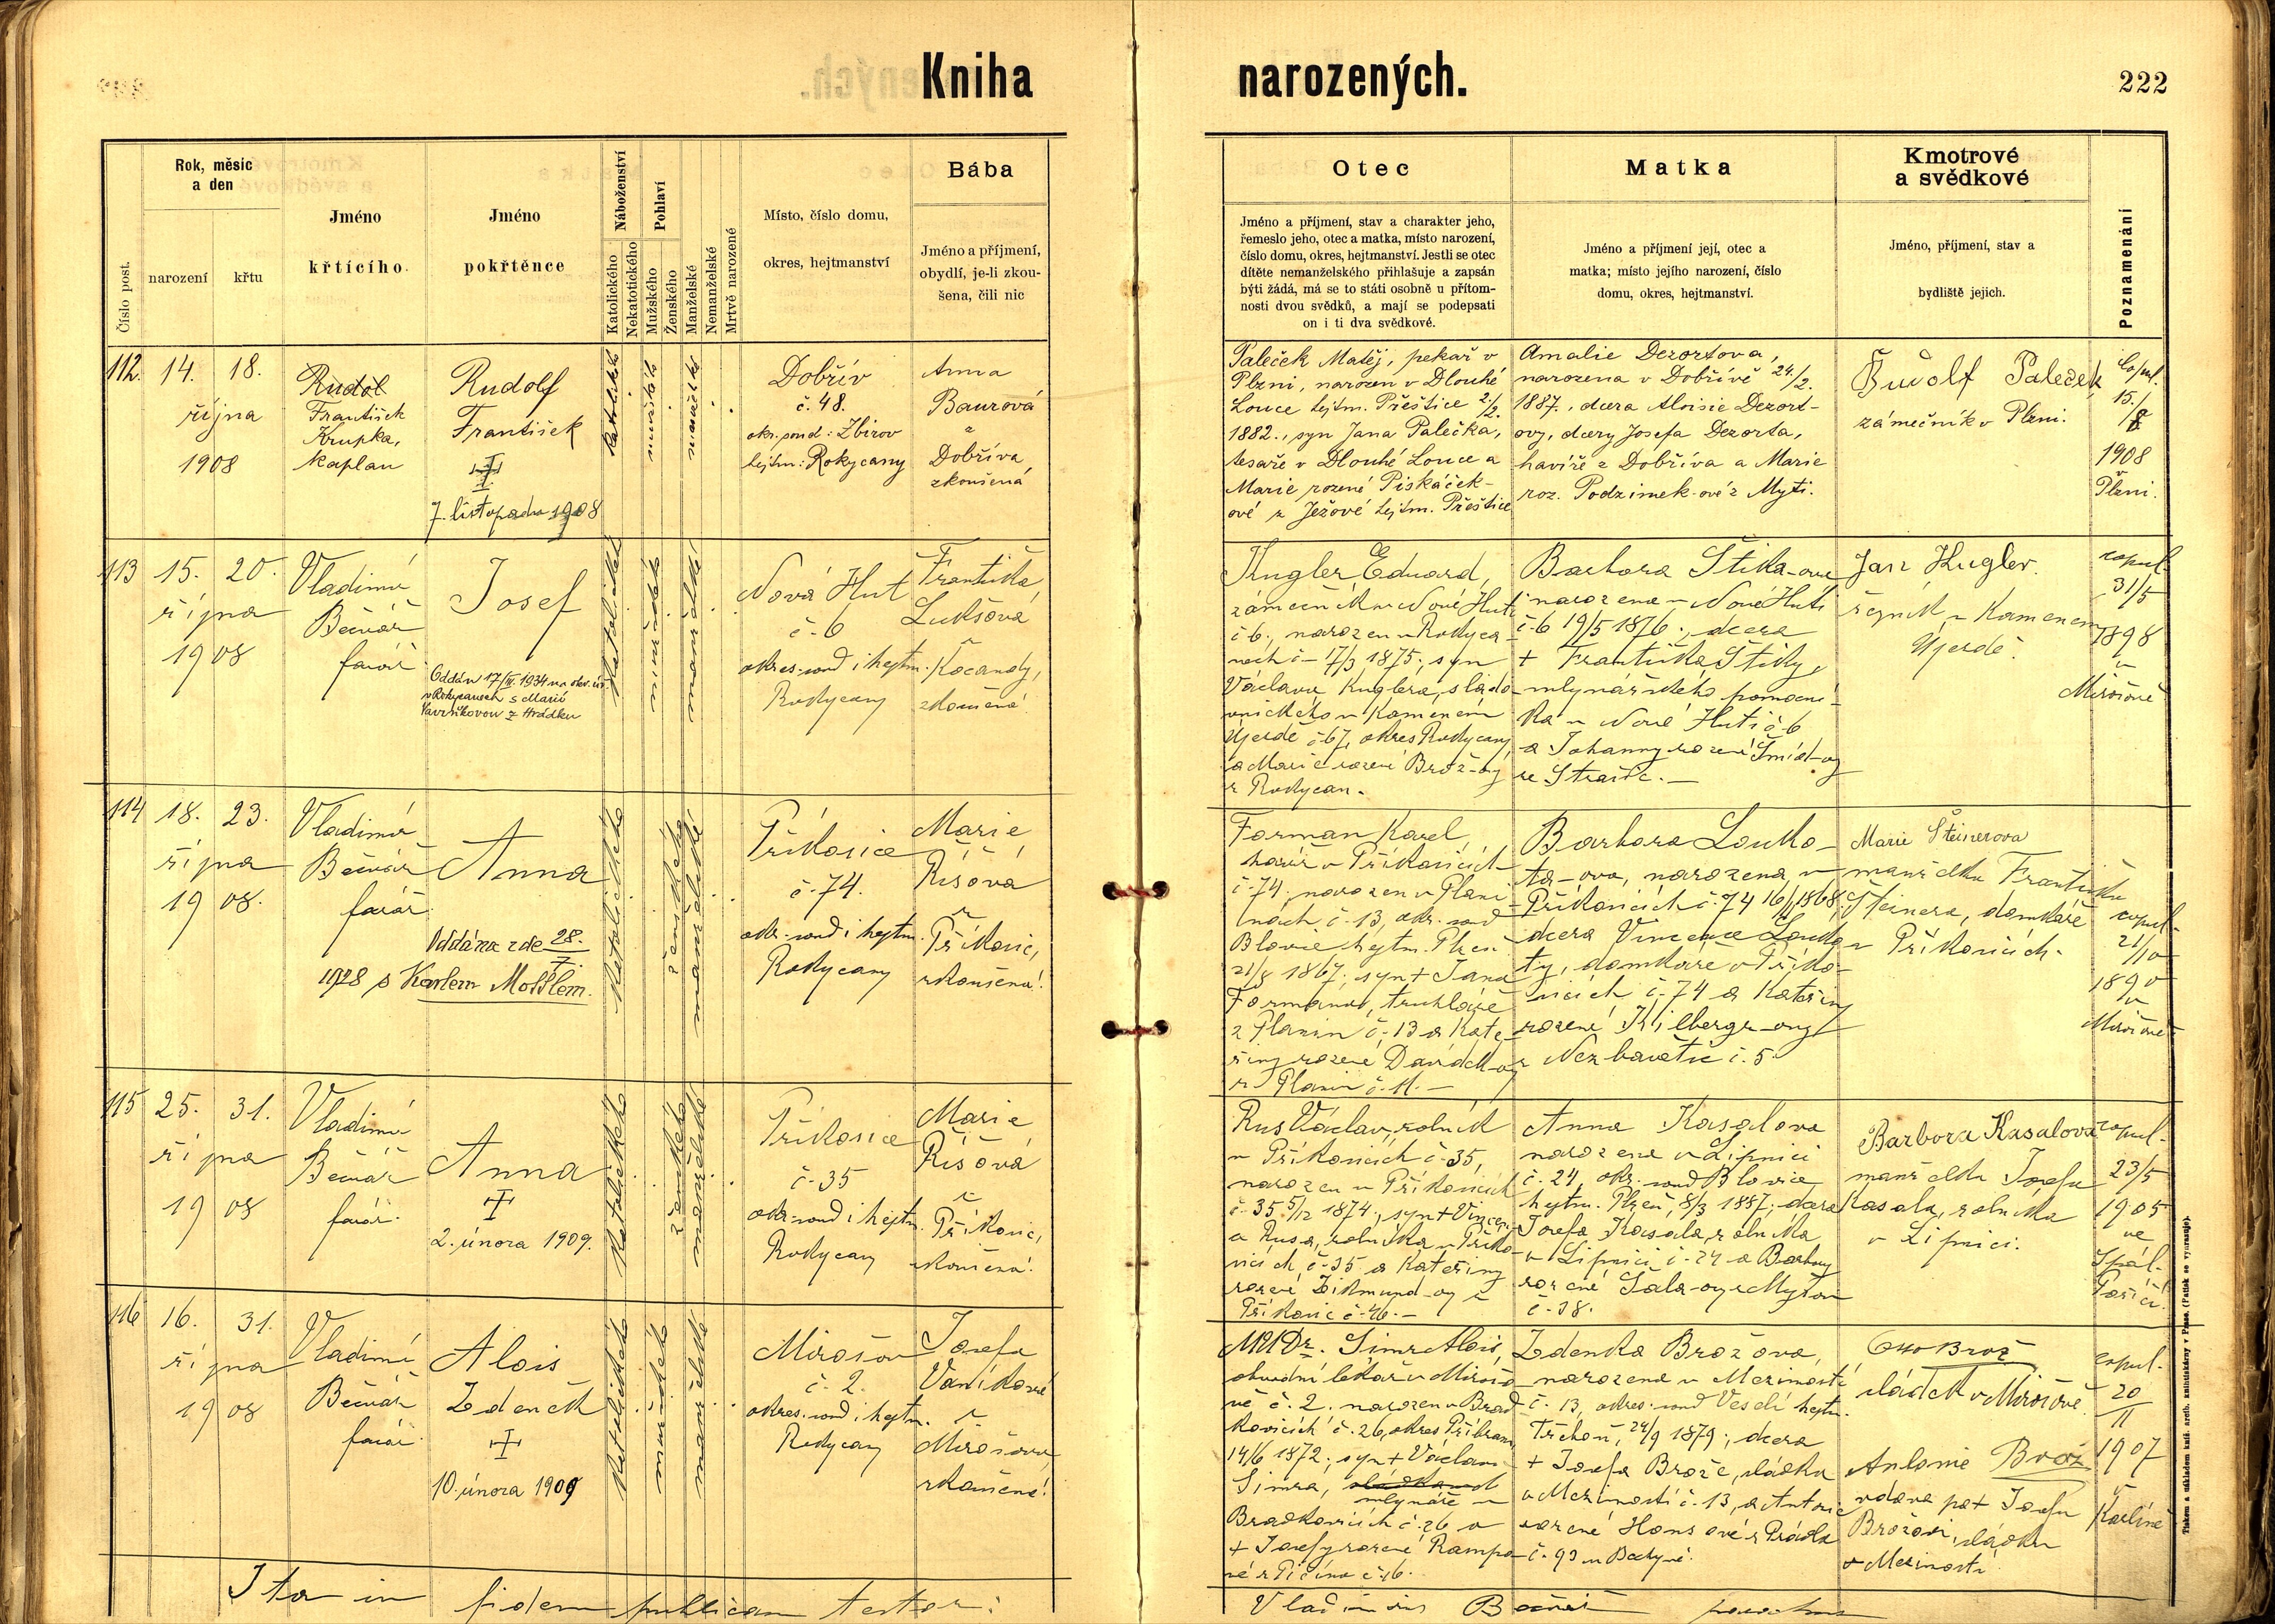 Kniha narozených.
222
Číslo post.
Rok, měsíc
a den
narození
křtu
Jméno
křtícího.
Jméno
pokřtěnce
Náboženství
Katolického
Nekatotického
Pohlaví
Mužského
Ženského
Manželské
Nemanželské
Mrtvě narozené
Místo, číslo domu,
okres, hejtmanství
Bába
Jméno a příjmení,
obydlí, je-li zkou-
šena, čili nic
Otec
Jméno a příjmení, stav a charakter jeho,
řemeslo jeho, otec a matka, místo narození,
číslo domu, okres, hejtmanství. Jestli se otec
dítěte nemanželského přihlašuje a zapsán
býti žádá, má se to státi osobně u přítom-
nosti dvou svědků, a mají se podepsati
on i ti dva svědkové.
Matka
Jméno a příjmení její, otec a
matka; místo jejího narození, číslo
domu, okres, hejtmanství.
Kmotrové
a svědkové
Jméno, příjmení, stav a
bydliště jejich.
Poznamenání
112. 14. 18.
října
1908
Rudol
František
Krupka,
kaplan
Rudolf
František
7. listopadu 1908
katolické
mužské
manželské
Dobřív
č. 48.
okr. soud: Zbirov
hejtm: Rokycany
Anna
Baurová
z
Dobříva
zkoušená
Paleček Matěj, pekař v
Plzni, narozen v Dlouhé
Louce hejtm. Přeštice 2./2.
1882., syn Jana Palečka,
tesaře v Dlouhé Louce a
Marie rozené Piskáček-
ové z Ježové hejtm. Přeštice
Amalie Dezortova,
narozena v Dobřívě 24/2.
1887., dcera Aloisie Dezort-
ovy, dcery Josefa Dezorta,
havíře z Dobříva a Marie
roz. Podzimek-ové z Myti.
Rudolf Paleček,
zámečník v Plzni.
Copul.
15./
1908
v
Plzni.
113 15. 20.
října
1908
Vladimír
Bečvář
farář
Josef
Oddán 17/III. 1934 na okr. úř.
v Rokycanech s Marií
Vavříkovou z Hrádku
Katolické
mužské
manželské
Nová Huť
č. 6
okres. soud i hejtm.
Rokycany
Františka
Lukšová
z
Kocandy,
zkoušená.
Kugler Eduard,
zámečník v Nové Huti
č. 6., narozen v Rokyca-
nech č- 17/3 1875; syn
Václava Kuglera, sládo-
vnického v Kamenném
Újezdě č 67, okres Rokycany
a Marie rozené Brož-ovy
z Rokycan.
Barbora Štika-ova
narozena v Nové Huti
č. 6 19/5 1876; dcera
+ Františka Štiky,
mlynářského pomocní-
ka v Nové Huti č 6
a Johanny rozené Šmíd-ovy
ze Strašic. -
Jan Kugler.
řezník v Kamenem
Ujezdě.
copul.
31/5
1898
v
Mirošově
114 18. 23.
října
1908.
Vladimír
Bečvář
farář.
Anna
Oddána zde 28./7.
1928 s Karlem Motlem.
Katolického
ženského
manželské
Příkosice
č. 74.
okr. soud i hejtm.
Rokycany
Marie
Říšová
z
Příkosic,
zkoušená.
Forman Karel
havíř v Příkosicích
č. 74, narozen v Plani-
nách č. 13, okr. soud
Blovice hejtm. Plzeň
21/8 1867; syn + Jana
Formana, truhláře
z Planin č. 13 a Kate-
řiny rozené Davídk-ovy
z Planin č. 11. -
Barbora Louko-
ta-ova, narozena v
Příkosicích č. 74 16/1 1868;
dcera Vincence Louko-
ty, domkáře v Příko-
sicích č. 74 a Kateřiny
rozené Kilbergr-ovy
z Nezbavětic č. 5.
Marie Šteinerova
manželka Františka
Šteinera, domkáře
v Příkosicích.
copul.
21/10
1890
v
Mirošově
115 25. 31.
října
1908
Vladimír
Bečvář
farář.
Anna
2. února 1909.
Katolického
ženského
manželské
Příkosice
č. 35
okr. soud i hejtm.
Rokycany
Marie
Říšová
z
Příkosic,
zkoušená.
Rus Václav, rolník
v Příkosicích č. 35,
narozen v Příkosicích
č. 35 5/12 1874; syn + Vincen-
a Rusa, rolníka v Příko-
sicích č. 35 a Kateřiny
rozené Zikmund-ovy z
Příkosic č. 46. -
Anna Kasalova
narozena v Lipnici
č. 24, okr. soud Blovice
hejtm. Plzeň, 8/3 1887; dcera
Josefa Kasala, rolníka
v Lipnici č. 24 a Barbory
rozené Šala-ovy z Mýta
č. 38.
Barbora Kasalova
manželka Josefa
Kasala, rolníka
v Lipnici.
copul.
23/5
1905
ve
Spál.
Poříčí.
116 16. 31.
října
1908
Vladimír
Bečvář
farář.
Alois
Zdeněk
10. února 1909
Katolického
mužského
manželské
Mirošov
č. 2.
okres. soud i hejtm.
Rokycany
Josefa
Vaníková
z
Mirošova,
zkoušená.
MUDr. Simra Alois,
obvodní lékař v Mirošo-
vě č. 2. narozen v Brad-
kovicích č. 26, okres Příbram,
14/6 1872; syn + Václava
Simra,
mlynáře v
Bradkovicích č. 26 a
+ Josefy rozené Rampo-
vé z Pičína č. 16.
Zdenka Brožova,
narozena v Mezimostí
č. 13, okres. soud Veselí hejtm.
Třeboň, 24/9 1879; dcera
+ Josefa Brože, sládka
v Mezimostí č. 13, a Antonie
rozené Hons ové z Prádla
č. 93 u Bechyně.
Otto Brož
sládek v Mirošově.
Antonie Brož
vdova po + Josefu
Brožovi, sládku
v Mezimostí
copul.
20
11
1907
v
Karlíně
Ita in fidem publicam testor:
Vladimirus Bečvář parochus
Tiskem a nákladem kníž. arcib. knihtiskárny v Praze. (Patisk se vyhrazuje).